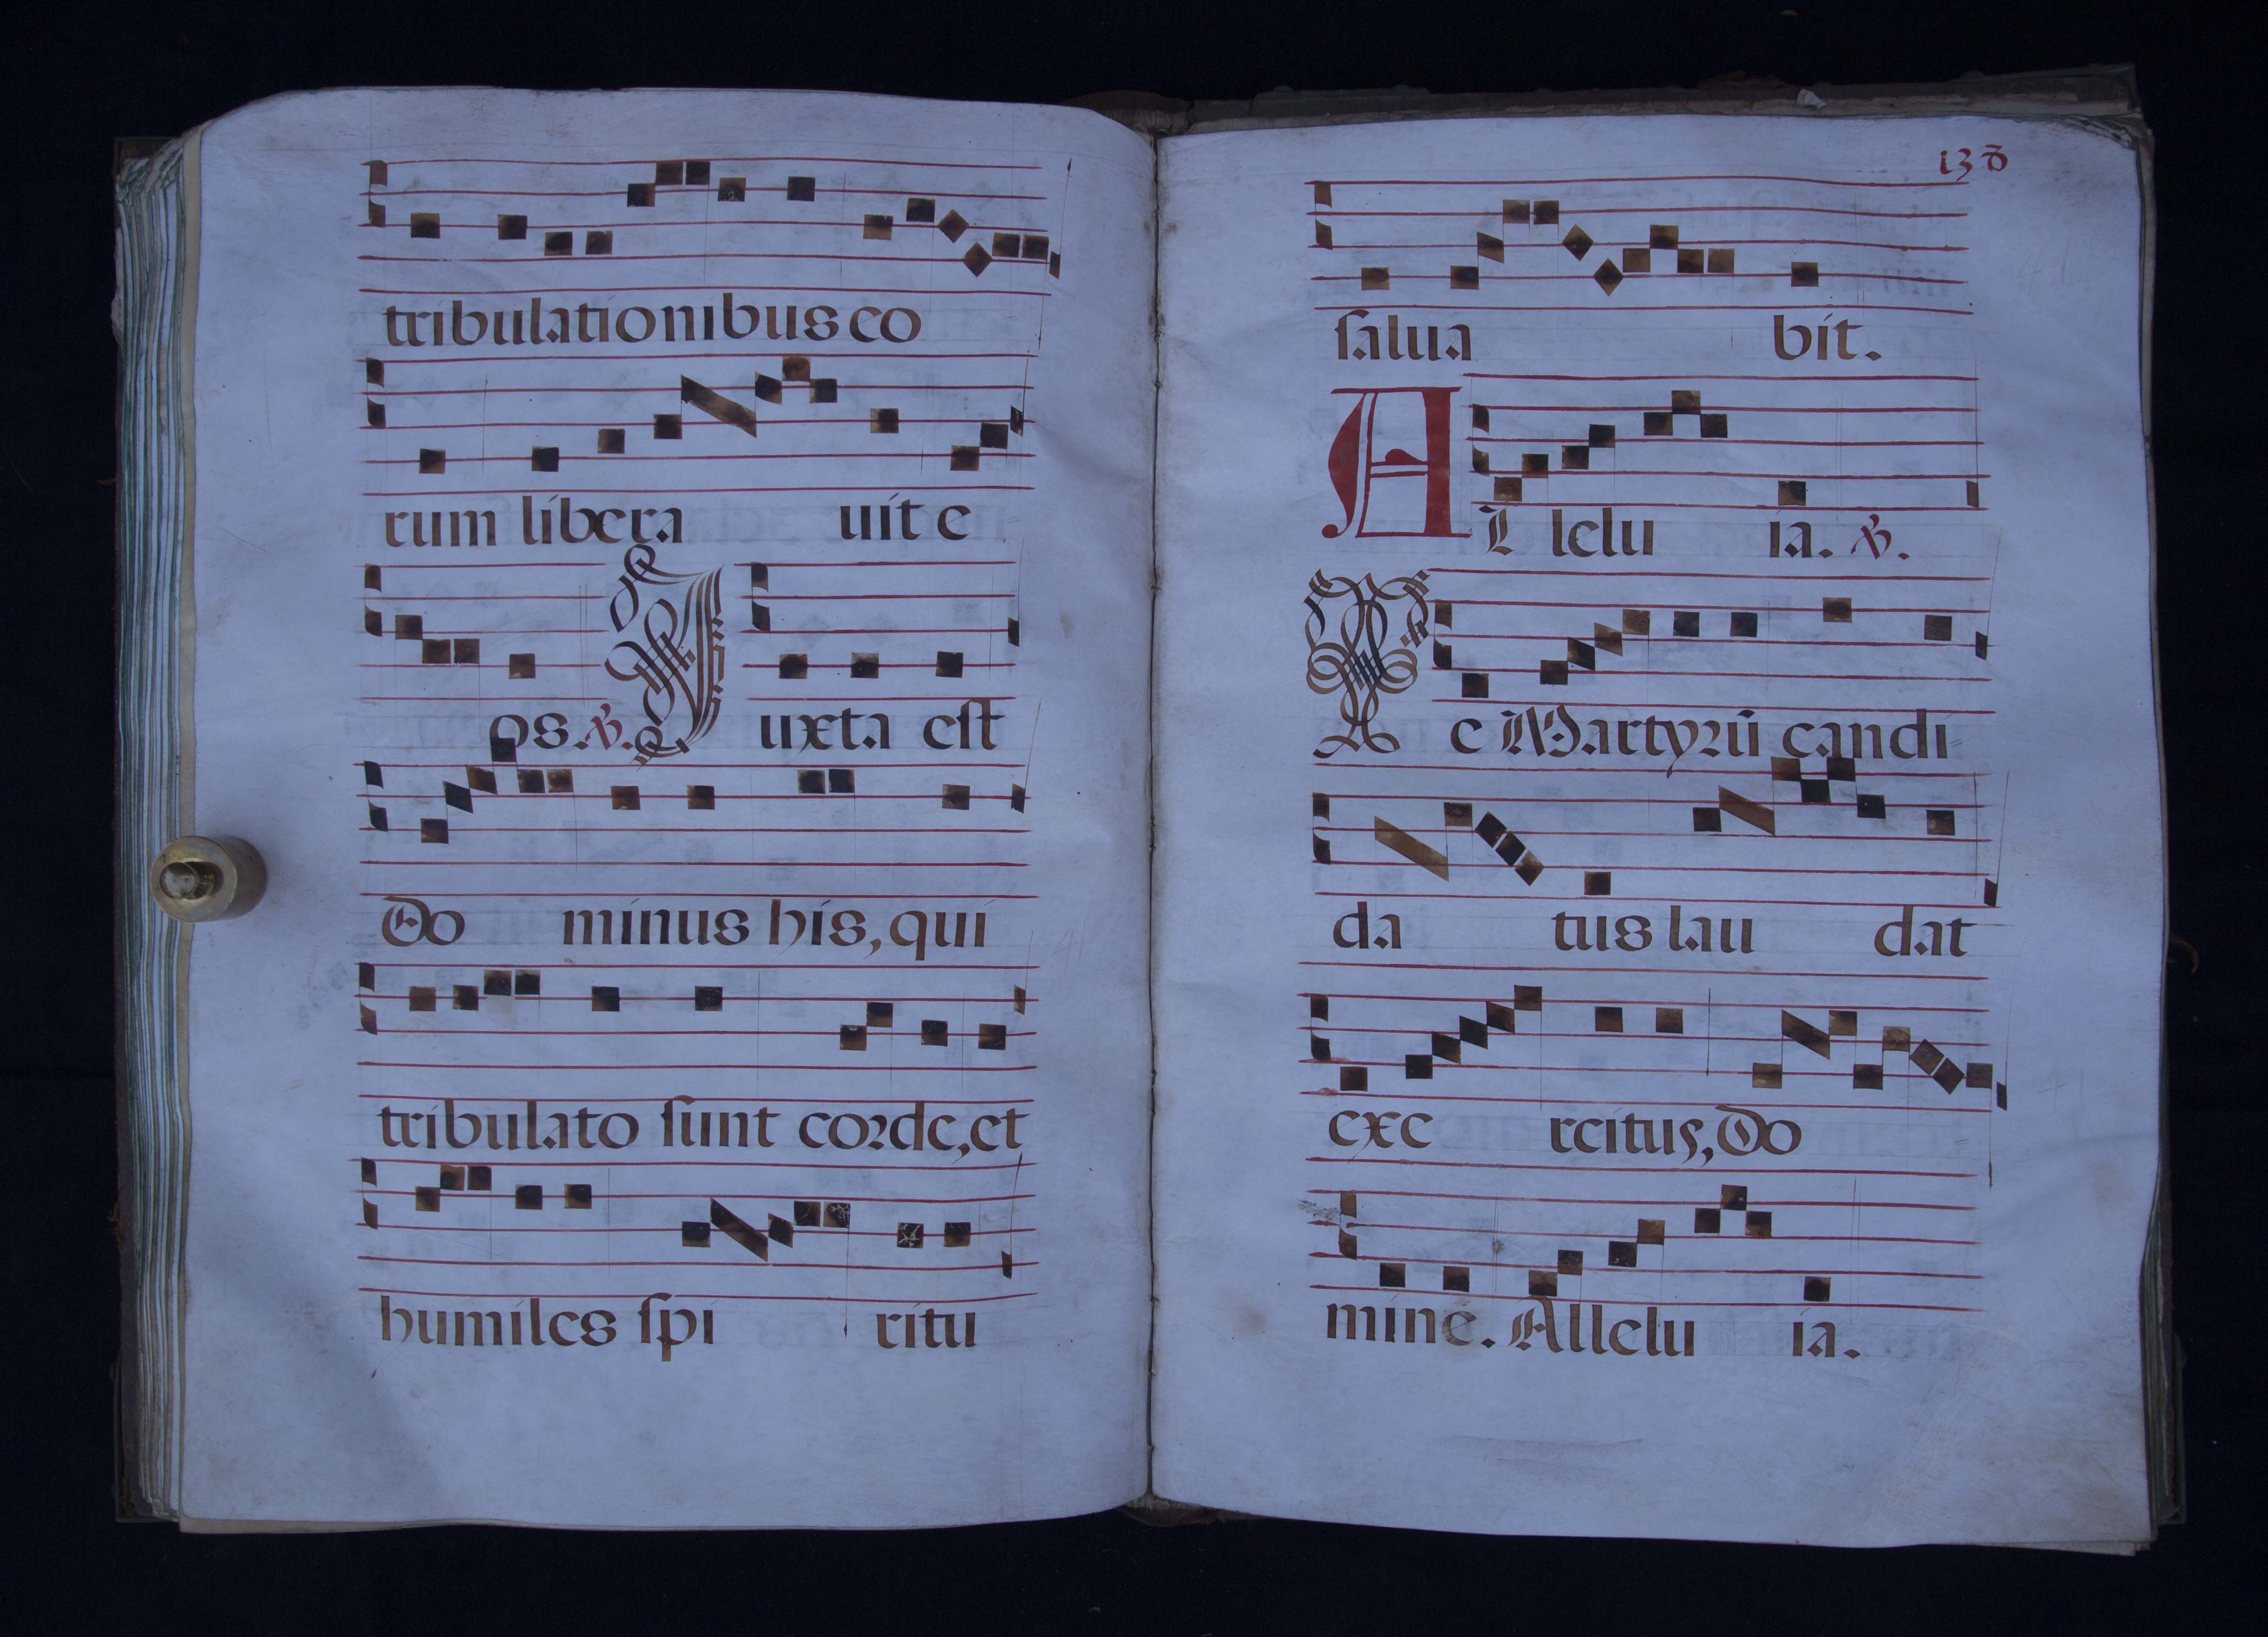 tribulationibus eo
rum libera uit e
os. ℣. Iuxta est
Do minus his, qui
tribulato sunt corde, et
humiles spi ritu
138
salua bit.
AL lelu ia. ℣.
Te Martyrū candi
da tus lau dat
exe rcitus, Do
mine. Allelu ia.